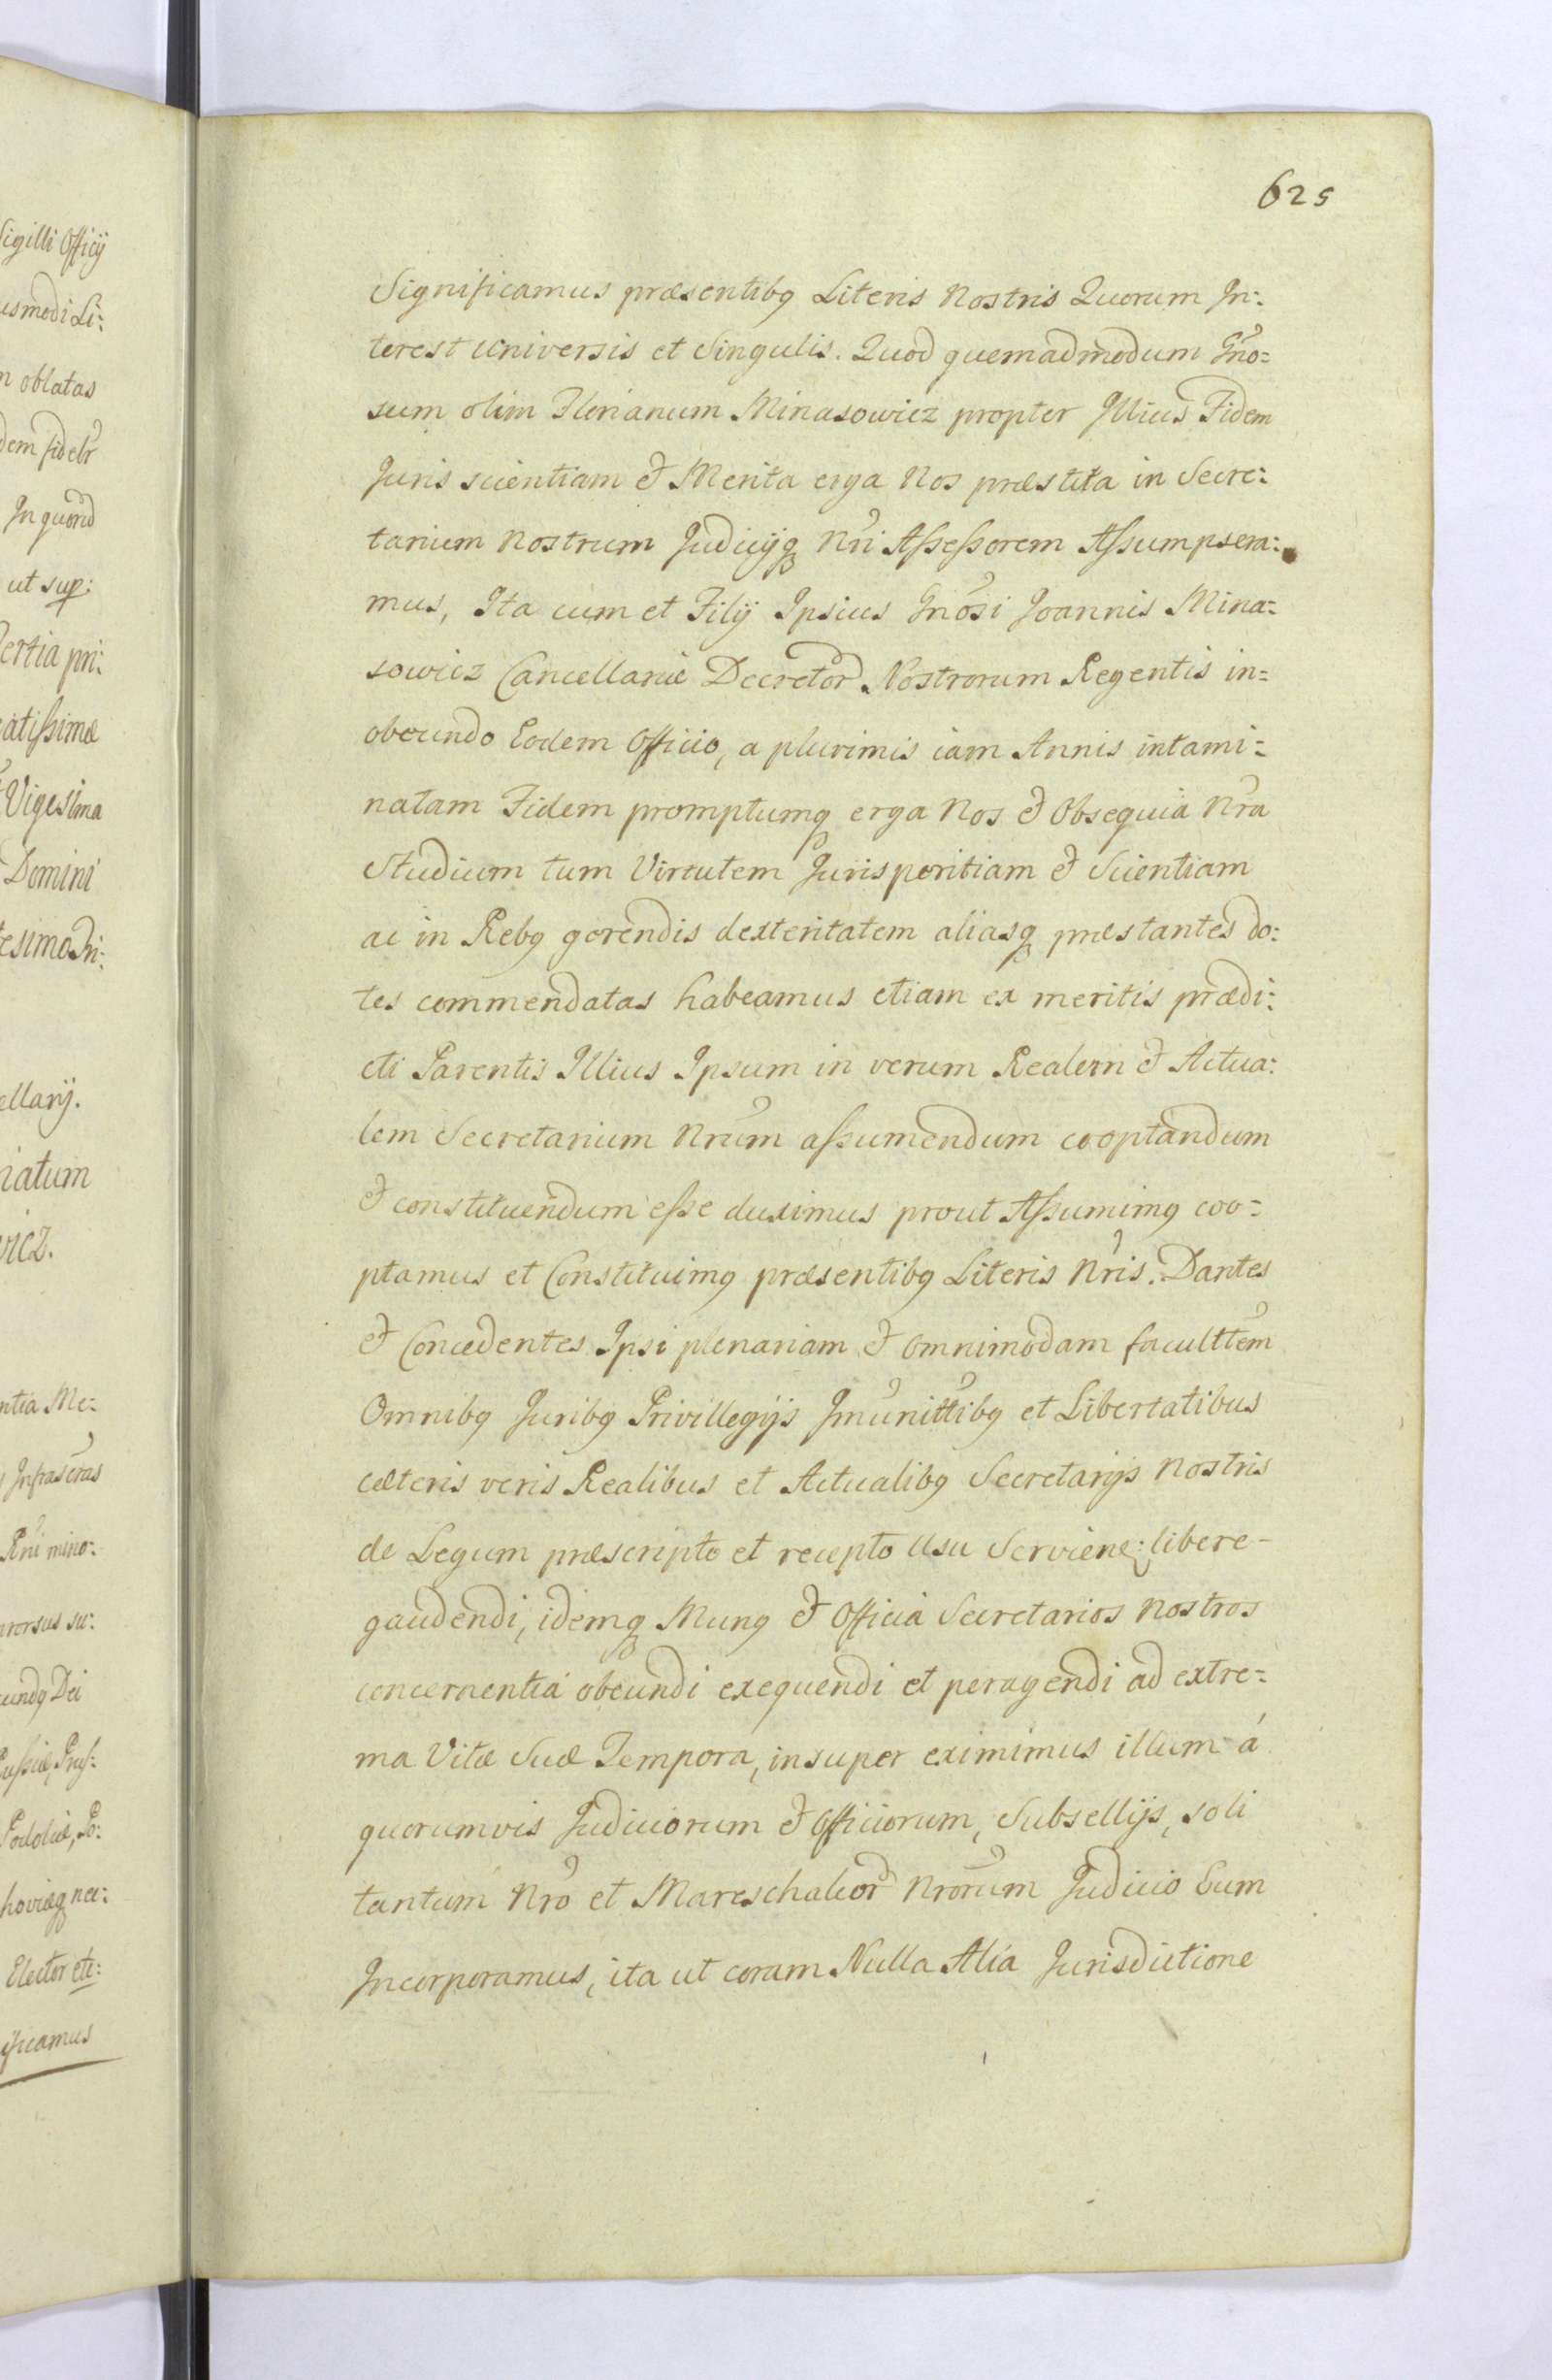 625
Significamus præsentibq Literis Nostris Quorum In:
terest Universis et Singulis. Quod quemadmodum Gno=
sum olim Florianum Minasowicz propter Illius Fidem
Juris scientiam & Merita erga Nos præstita in Secre:
tarium Nostrum Judicijq Nri Assessorem Assumpsera:
mus, Ita cum et Filij Ipsius Gnosi Joannis Mina=
sowicz Cancellariæ Decretor Nostrorum Regentis in=
obeundo Eodem Officio, a plurimis iam Annis intami=
natam Fidem promptumq erga Nos & Obsequia Nra
Studium tum Virtutem Jurisperitiam & Scientiam
ac in Rebq gerendis dexteritatem aliasq præstantes do:
tes commendatas habeamus etiam ex meritis prædi:
cti Parentis Illius Ipsum in verum Realem & Actua:
lem Secretarium Nrum assumendum cooptandum
& constituendum esse duximus prout Assumimq coo=
ptamus et Constituimq præsentibq Literis Nris. Dantes
& Concedentes Ipsi plenariam & omnimodam faculttem
Omnibq Juribq Privillegijs Imunittibq et Libertatibus
cæteris veris Realibus et Actualibq Secretarijs Nostris
de Legum præscripto et recepto Usu Serviene: libere-
gaudendi, idemq Munq & Officia Secretarios Nostros
concernentia obeundi exequendi et peragendi ad extre=
ma Vitæ Suæ Tempora, insuper eximimus illum á
quorumvis Judiciorum & Officiorum, Subsellijs, soli
tantum Nro et Mareschalcor Nrorum Judicio Eum
Incorporamus, ita ut coram Nulla Alia Jurisdictione
sigilli Officij
usmodi Li:
oblatas
In quord
ut sup:
ertia pri:
atissimæ
Vigesima
Domini
ellarij.
iatum
ntia Me:
Infrascras
Rni mino:
Podoliæ, Po:
Elector etc:
ificamus